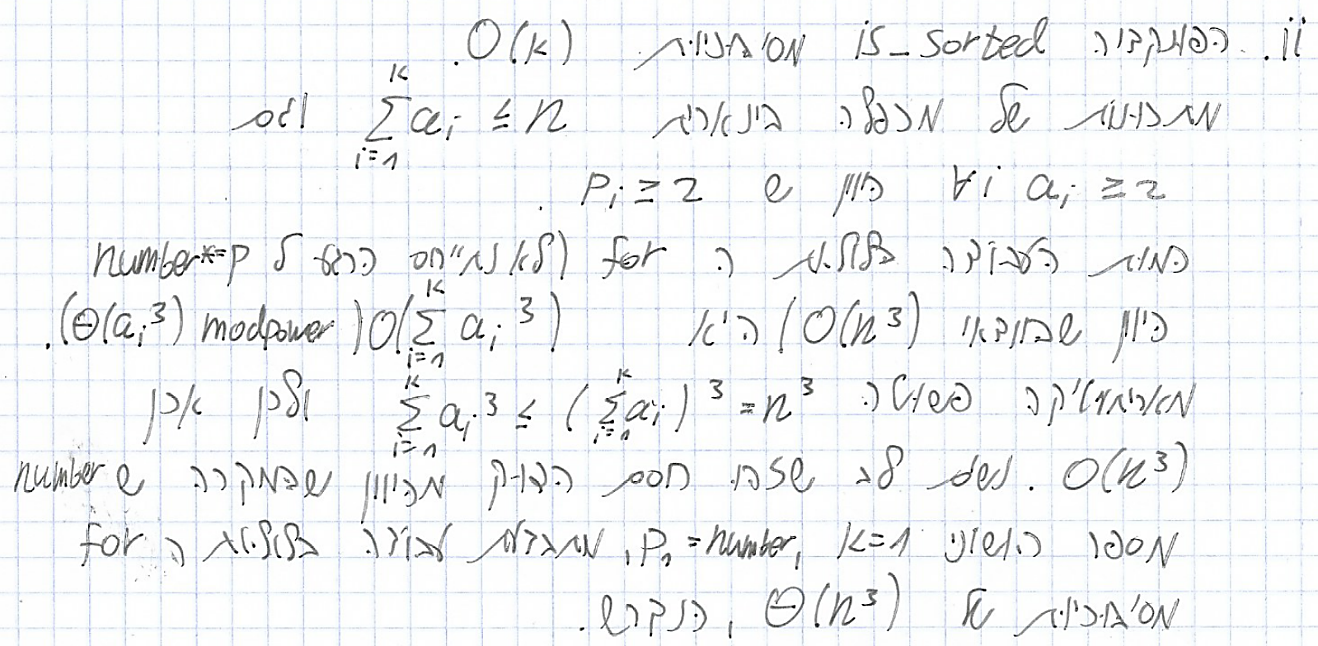 ii. הפונקציה is_sorted מסיבוכיות O(k).
מתכונות של מכפלה בינארית \sum_{i=1}^{k} a_i ≤ n וגם
∀i a_i ≥ 2 כיוון ש p_i ≥ 2.
כמות העבודה בלולאת ה for (לא נתייחס כרגע ל number*=p
כיוון שבוודאי O(n³)) היא O(\sum_{i=1}^{k} a_i³) (modpower Θ(a_i³)).
מאריתמטיקה פשוטה \sum_{i=1}^{k} a_i³ ≤ (\sum_{i=1}^{k} a_i)³ = n³ ולכן אכן
O(n³). נשים לב שזהו חסם הדוק מכיוון שבמקרה ש number
מספר ראשוני k=1, p_1=number, מתבצעת עבודה בלולאת ה for
מסיבוכיות של Θ(n³), כנדרש.